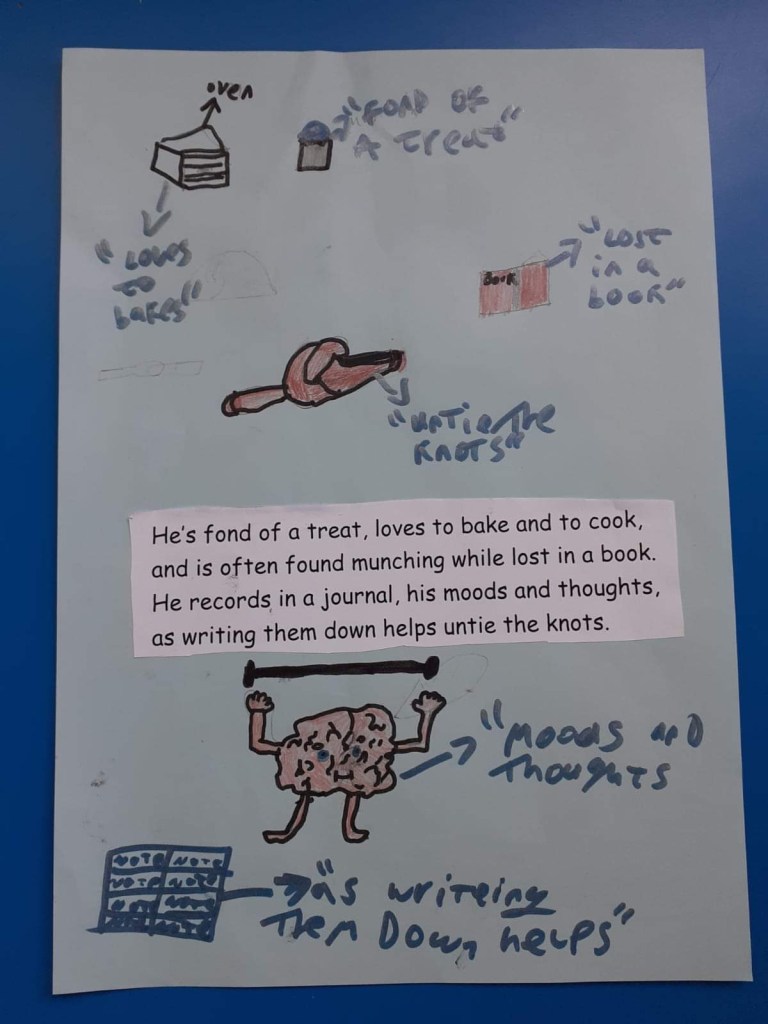 oven
"FOND OF
A Treat"
"Loves
To
bakes"
Book
"LOST
in a
book"
"UnTie The
KnOTS"
He's fond of a treat, loves to bake and to cook,
and is often found munching while lost in a book.
He records in a journal, his moods and thoughts,
as writing them down helps untie the knots.
"Moods AnD
Thoughts
NOTE NOTE
NOTE NOTE
NOTE NOTE
"As writeing
Them Down helps"